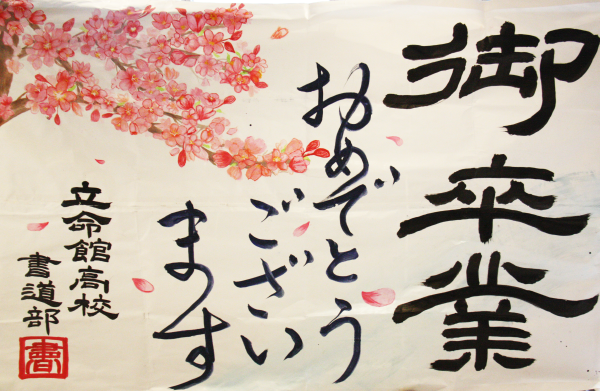 御卒業
おめでとう
ござい
ます
立命館高校
書道部
書